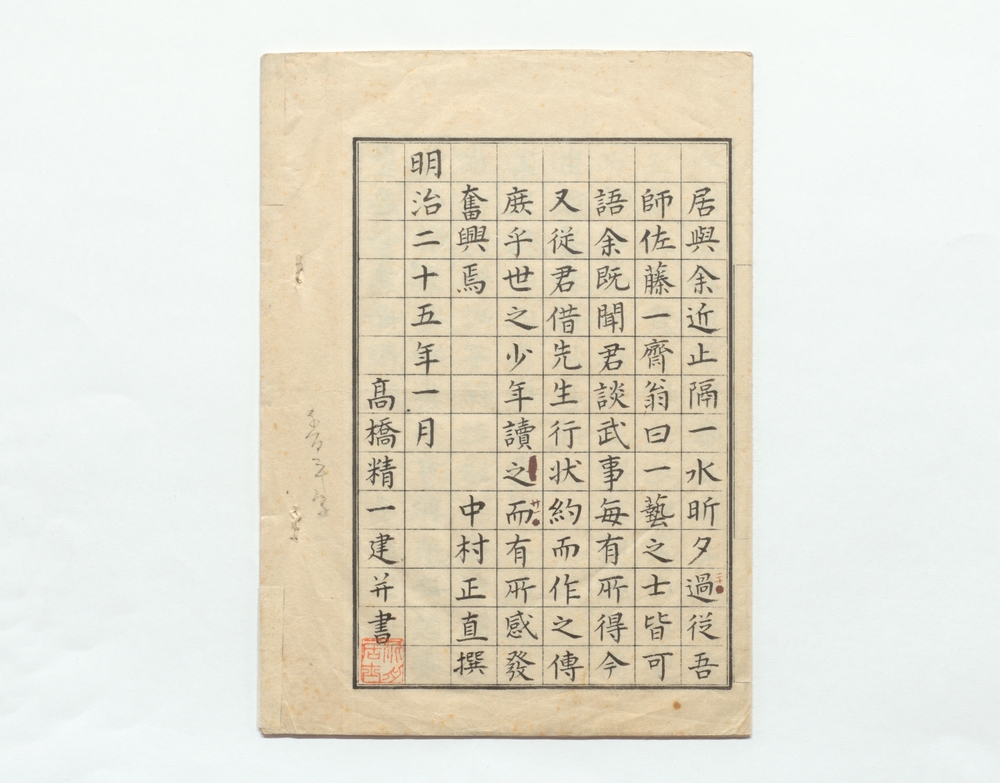 居與余近止隔一水昕夕過從吾
師佐藤一齊翁曰一藝之士皆可
語余既聞君談武事每有所得今
又從君借先生行状約而作之傳
庻乎世之少年讀之而有所感發
奮興焉　　　　　中村正直撰
明治二十五年一月
髙橋精一建并書